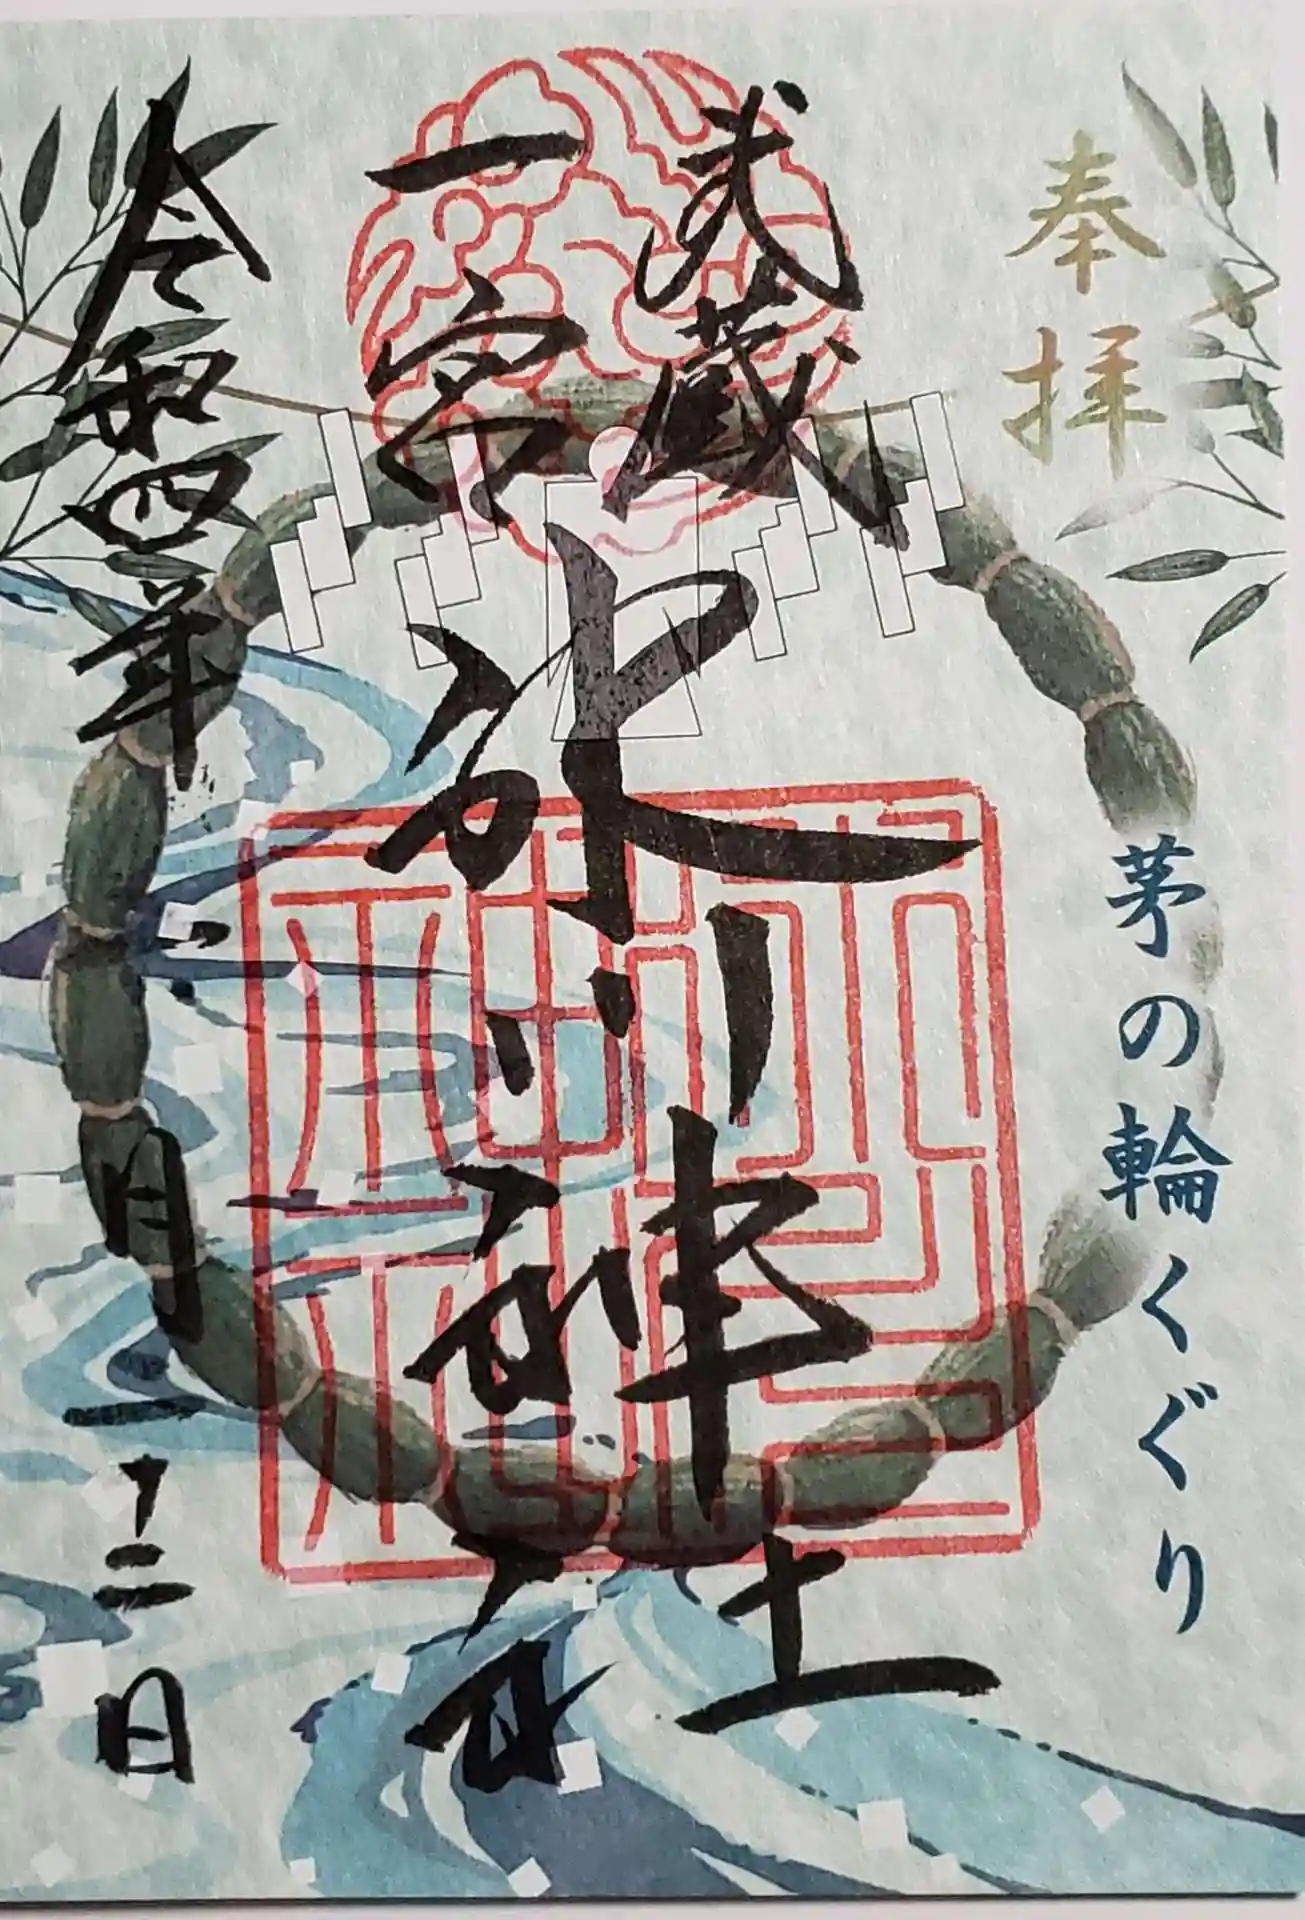 奉拝
茅の輪くぐり
武蔵
一宮
氷川神社
令和四年六月二十二日